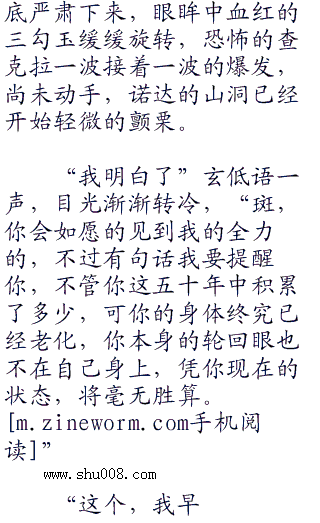 底严肃下来，眼眸中血红的
三勾玉缓缓旋转，恐怖的查
克拉一波接着一波的爆发，
尚未动手，诺达的山洞已经
开始轻微的颤栗。
“我明白了”玄低语一
声，目光渐渐转冷，“斑，
你会如愿的见到我的全力
的，不过有句话我要提醒
你，不管你这五十年中积累
了多少，可你的身体终究已
经老化，你本身的轮回眼也
不在自己身上，凭你现在的
状态，将毫无胜算。
[m.zineworm.com手机阅
读]”
www.shu008.com
“这个，我早